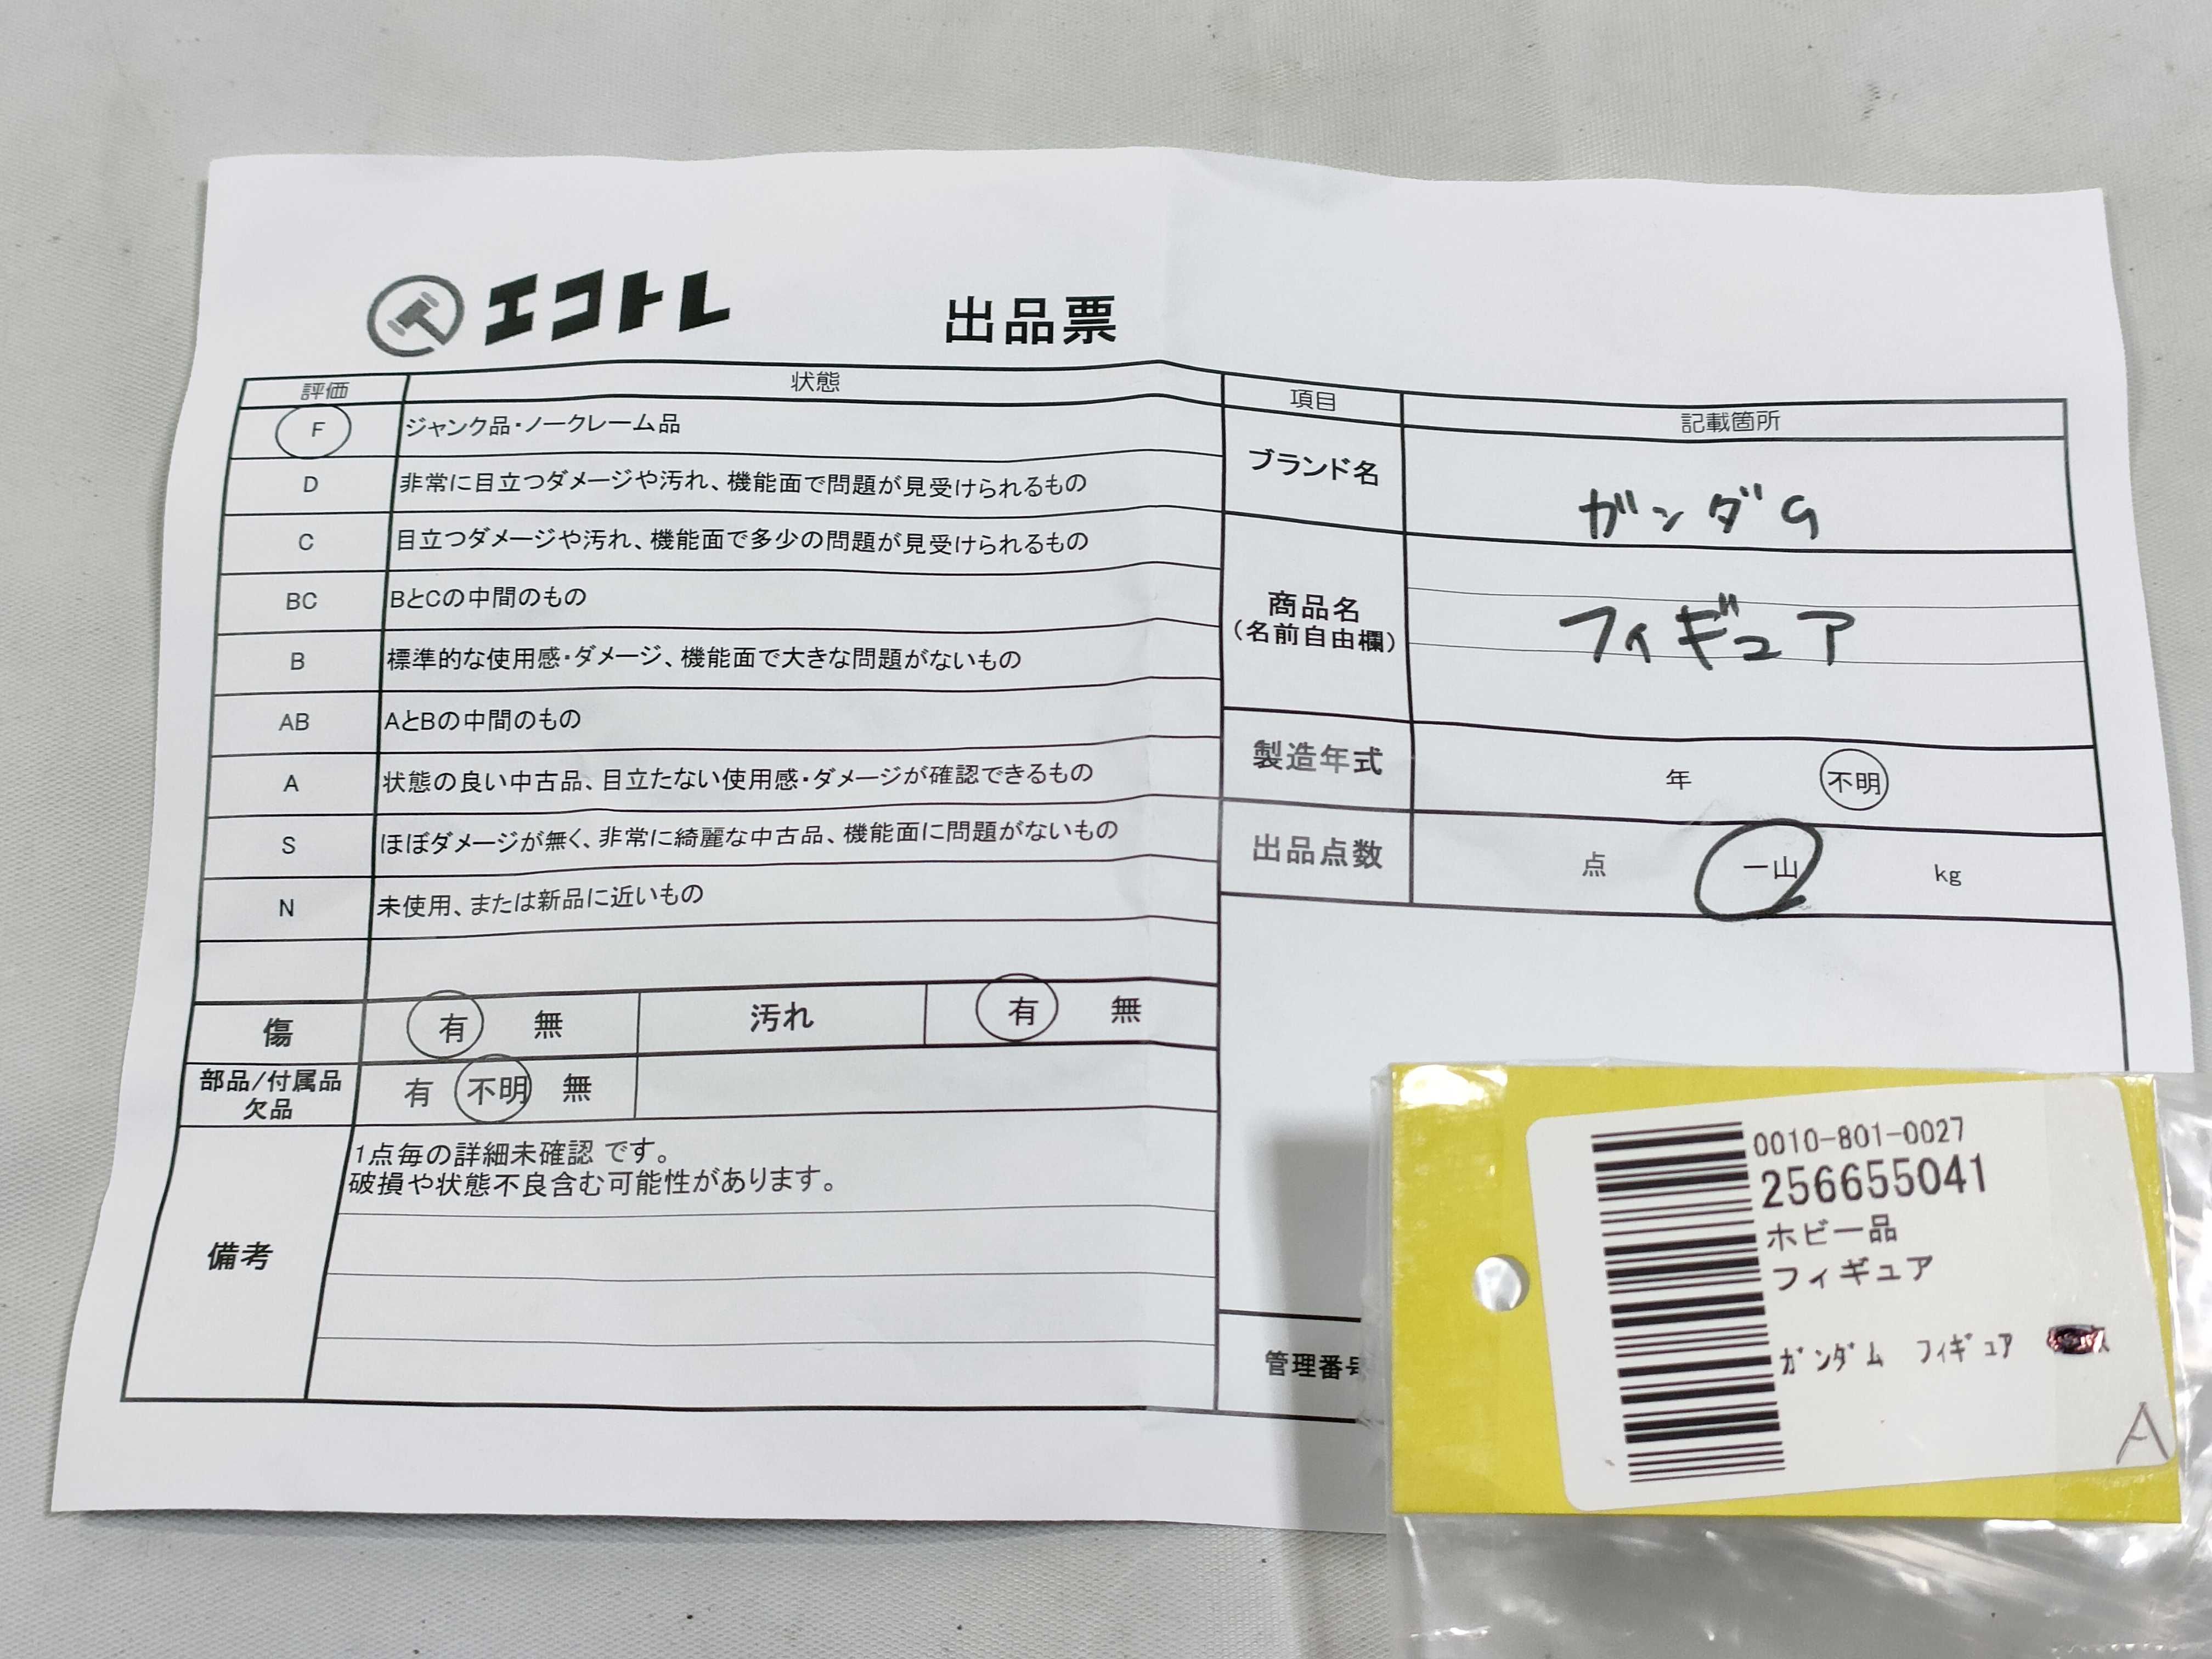 エコトレ
出品票
評価 状態
F ジャンク品・ノークレーム品
D 非常に目立つダメージや汚れ、機能面で問題が見受けられるもの
C 目立つダメージや汚れ、機能面で多少の問題が見受けられるもの
BC BとCの中間のもの
B 標準的な使用感・ダメージ、機能面で大きな問題がないもの
AB AとBの中間のもの
A 状態の良い中古品、目立たない使用感・ダメージが確認できるもの
S ほぼダメージが無く、非常に綺麗な中古品、機能面に問題がないもの
N 未使用、または新品に近いもの
傷 有 無 汚れ 有 無
部品/付属品
欠品 有 不明 無
備考
1点毎の詳細未確認 です。
破損や状態不良含む可能性があります。
項目 記載箇所
ブランド名 ガンダム
商品名
(名前自由欄) フィギュア
製造年式 年 不明
出品点数 点 一山 kg
管理番号
0010-801-0027
256655041
ホビー品
フィギュア
ガンダム フィギュア
A